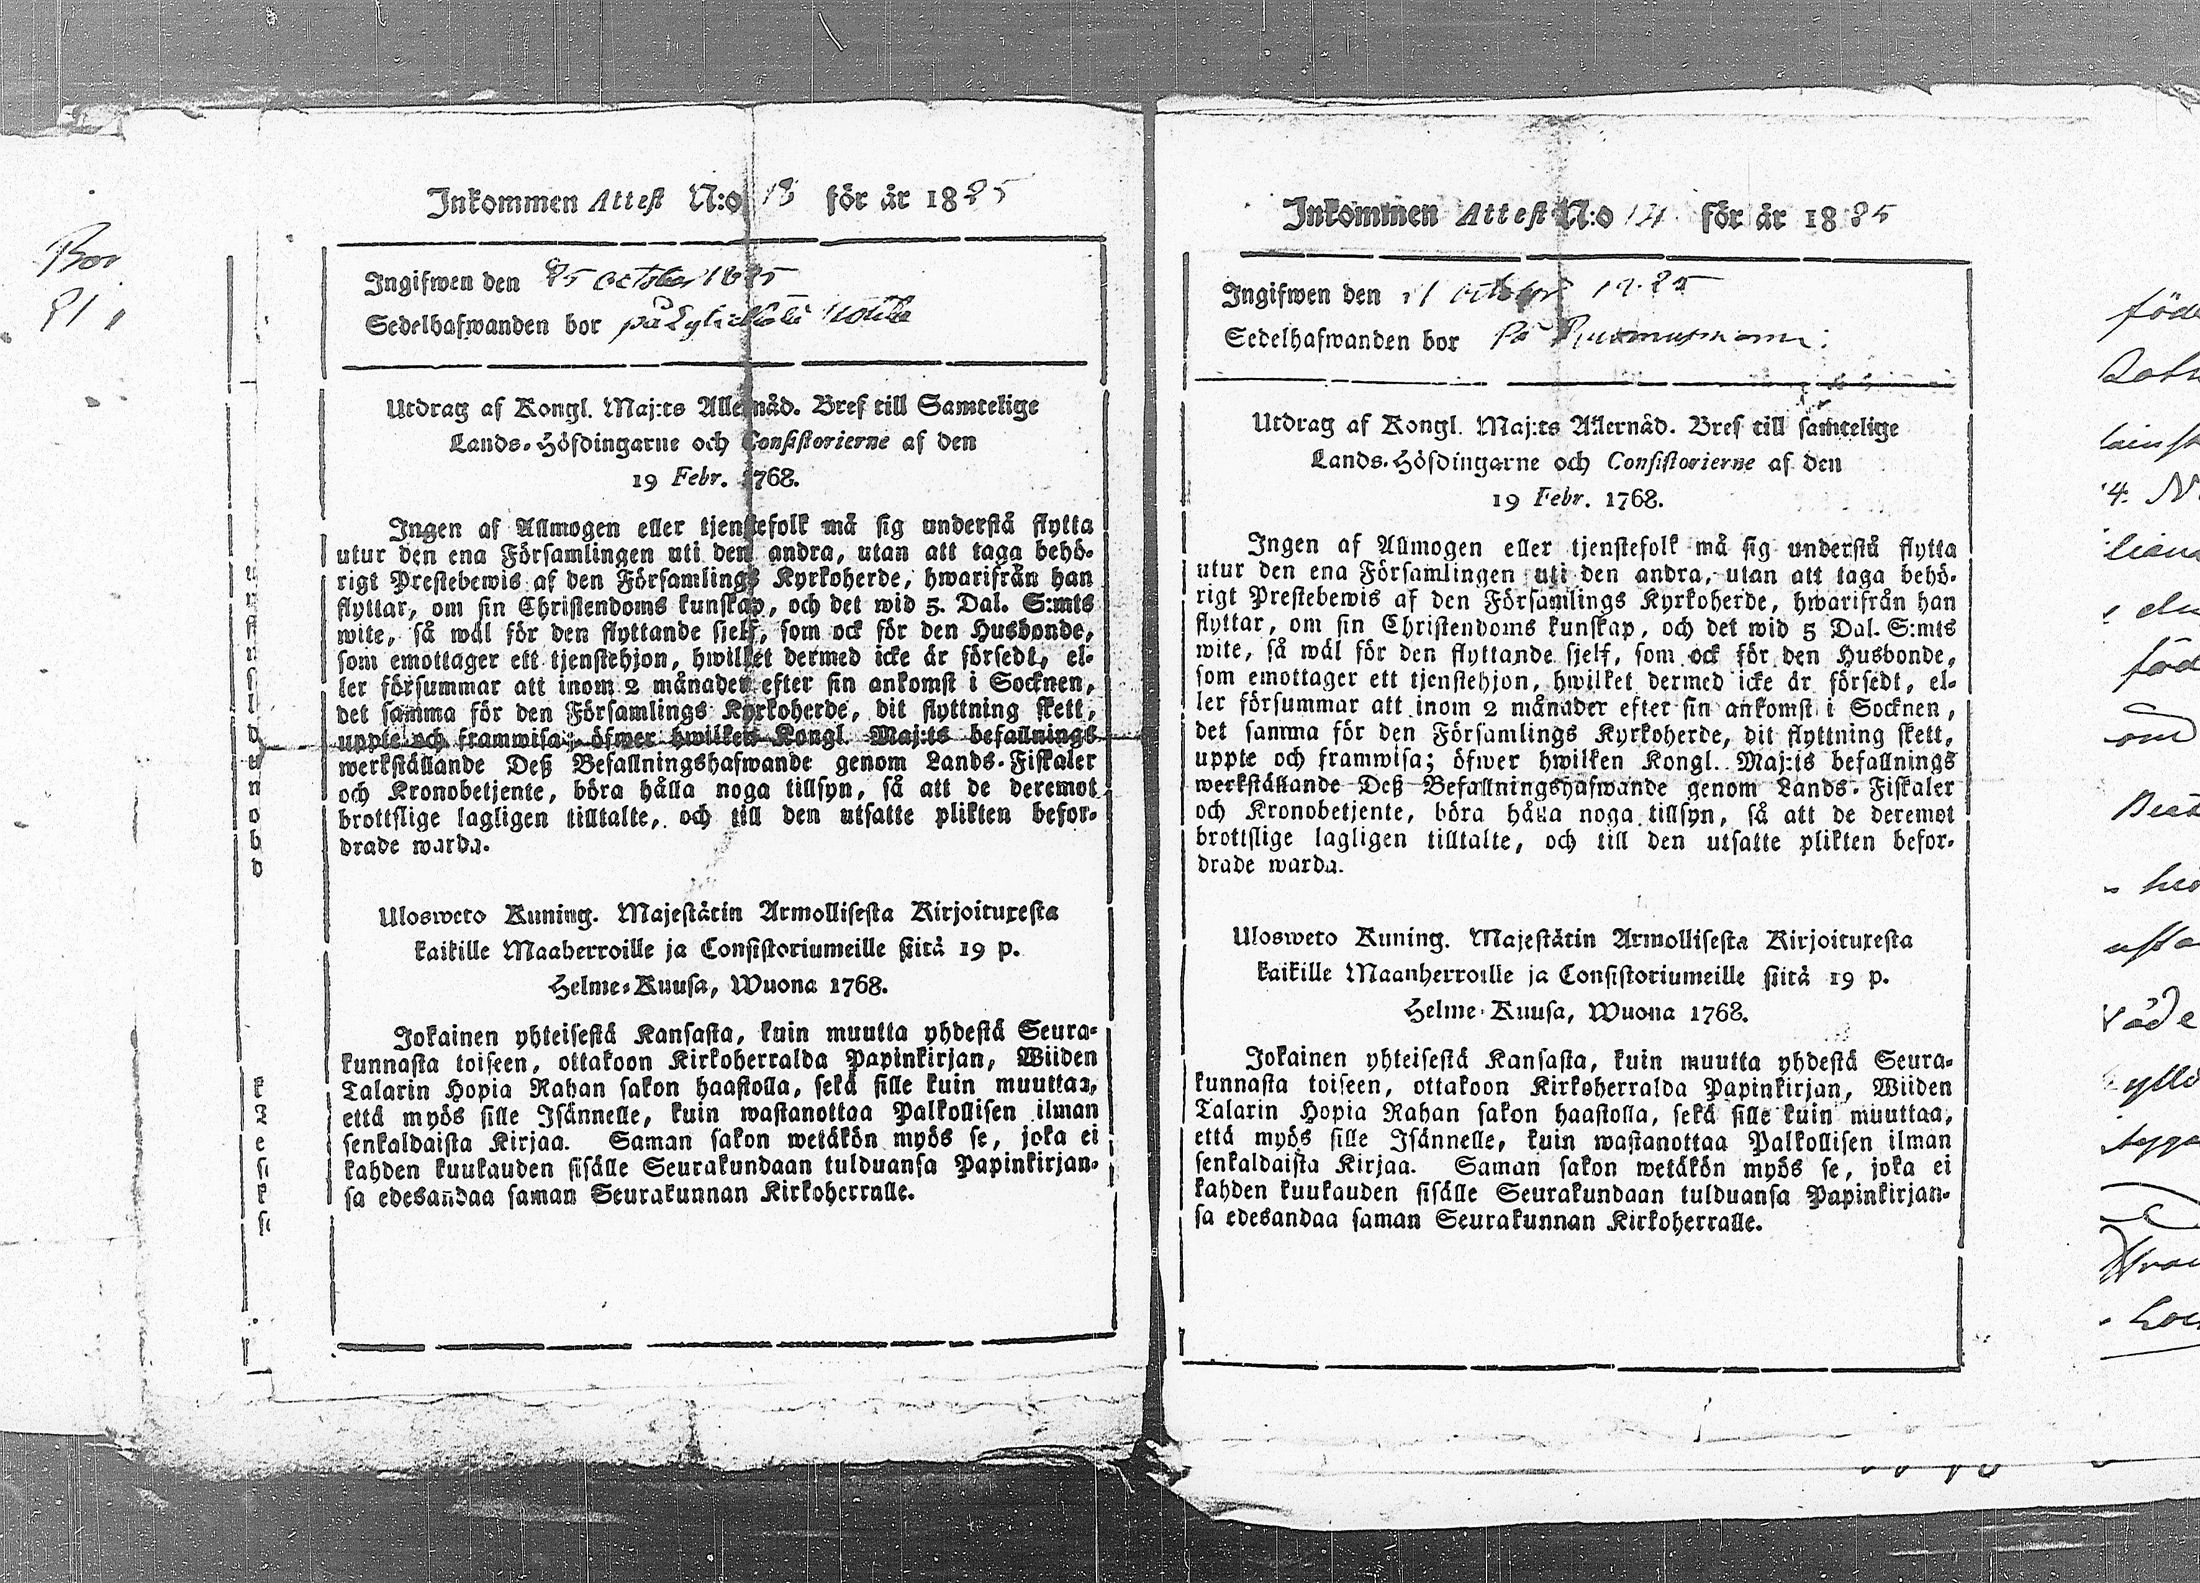 Inkommen Attest N:o 13 för år 1825
Ingifwen den 25 october 1825
Sedelhafwanden bor på
Utdrag af Kongl. Maj:ts Allernåd. Bref till Samtelige
Lands-Höfdingarne och Consistorierne af den
19 Febr. 1768.
Ingen af Allmogen eller tjenstefolk må sig understå flytta
utur den ena Församlingen uti den andra, utan att taga behö-
rigt Prestebewis af den Församlings Kyrkoherde, hwarifrån han
flyttar, om sin Christendoms kunskap, och det wid 5. Dal. S:mts
wite, så wäl för den flyttande sjelf, som ock för den Husbonde,
som emottager ett tjenstehjon, hwilket dermed icke är försedt, el-
ler försummar att inom 2 månader efter sin ankomst i Socknen,
det samma för den Församlings Kyrkoherde, dit flyttning skett,
uppte och framwisa; öfwer hwilken Kongl. Maj:ts befallnings
werkställande Deß Befallningshafwande genom Lands-Fiskaler
och Kronobetjente, böra hålla noga tillsyn, så att de deremot
brottslige lagligen tilltalte, och till den utsatte plikten befor-
drade warda.
Ulosweto Kuning. Majestätin Armollisesta Kirjoituxesta
kaikille Maaherroille ja Consistoriumeille siitä 19 p.
Helme-Kuusa, Wuona 1768.
Jokainen yhteisestä Kansasta, kuin muutta yhdestä Seura-
kunnasta toiseen, ottakoon Kirkoherralda Papinkirjan, Wiiden
Talarin Hopia Rahan sakon haastolla, sekä sille kuin muuttaa,
että myös sille Isännelle, kuin wastanottaa Palkollisen ilman
senkaldaista Kirjaa. Saman sakon wetäkön myös se, joka ei
kahden kuukauden sisälle Seurakundaan tulduansa Papinkirjan-
sa edesandaa saman Seurakunnan Kirkoherralle.
Inkommen Attest N:o 14 för år 1825
Ingifwen den 31 october 1825
Sedelhafwanden bor På
Utdrag af Kongl. Maj:ts Allernåd. Bref till samtelige
Lands-Höfdingarne och Consistorierne af den
19 Febr. 1768.
Ingen af Allmogen eller tjenstefolk må sig understå flytta
utur den ena Församlingen uti den andra, utan att taga behö-
rigt Prestebewis af den Församlings Kyrkoherde, hwarifrån han
flyttar, om sin Christendoms kunskap, och det wid 5 Dal. S:mts
wite, så wäl för den flyttande sjelf, som ock för den Husbonde,
som emottager ett tjenstehjon, hwilket dermed icke är försedt, el-
ler försummar att inom 2 månader efter sin ankomst i Socknen,
det samma för den Församlings Kyrkoherde, dit flyttning skett,
uppte och framwisa; öfwer hwilken Kongl. Maj:ts befallnings
werkställande Deß Befallningshafwande genom Lands-Fiskaler
och Kronobetjente, böra hålla noga tillsyn, så att de deremot
brottslige lagligen tilltalte, och till den utsatte plikten befor-
drade warda.
Ulosweto Kuning. Majestätin Armollisesta Kirjoituxesta
kaikille Maanherroille ja Consistoriumeille siitä 19 p.
Helme-Kuusa, Wuona 1768.
Jokainen yhteisestä Kansasta, kuin muutta yhdestä Seura-
kunnasta toiseen, ottakoon Kirkoherralda Papinkirjan, Wiiden
Talarin Hopia Rahan sakon haastolla, sekä sille kuin muuttaa,
että myös sille Isännelle, kuin wastanottaa Palkollisen ilman
senkaldaista Kirjaa. Saman sakon wetäkön myös se, joka ei
kahden kuukauden sisälle Seurakundaan tulduansa Papinkirjan-
sa edesandaa saman Seurakunnan Kirkoherralle.